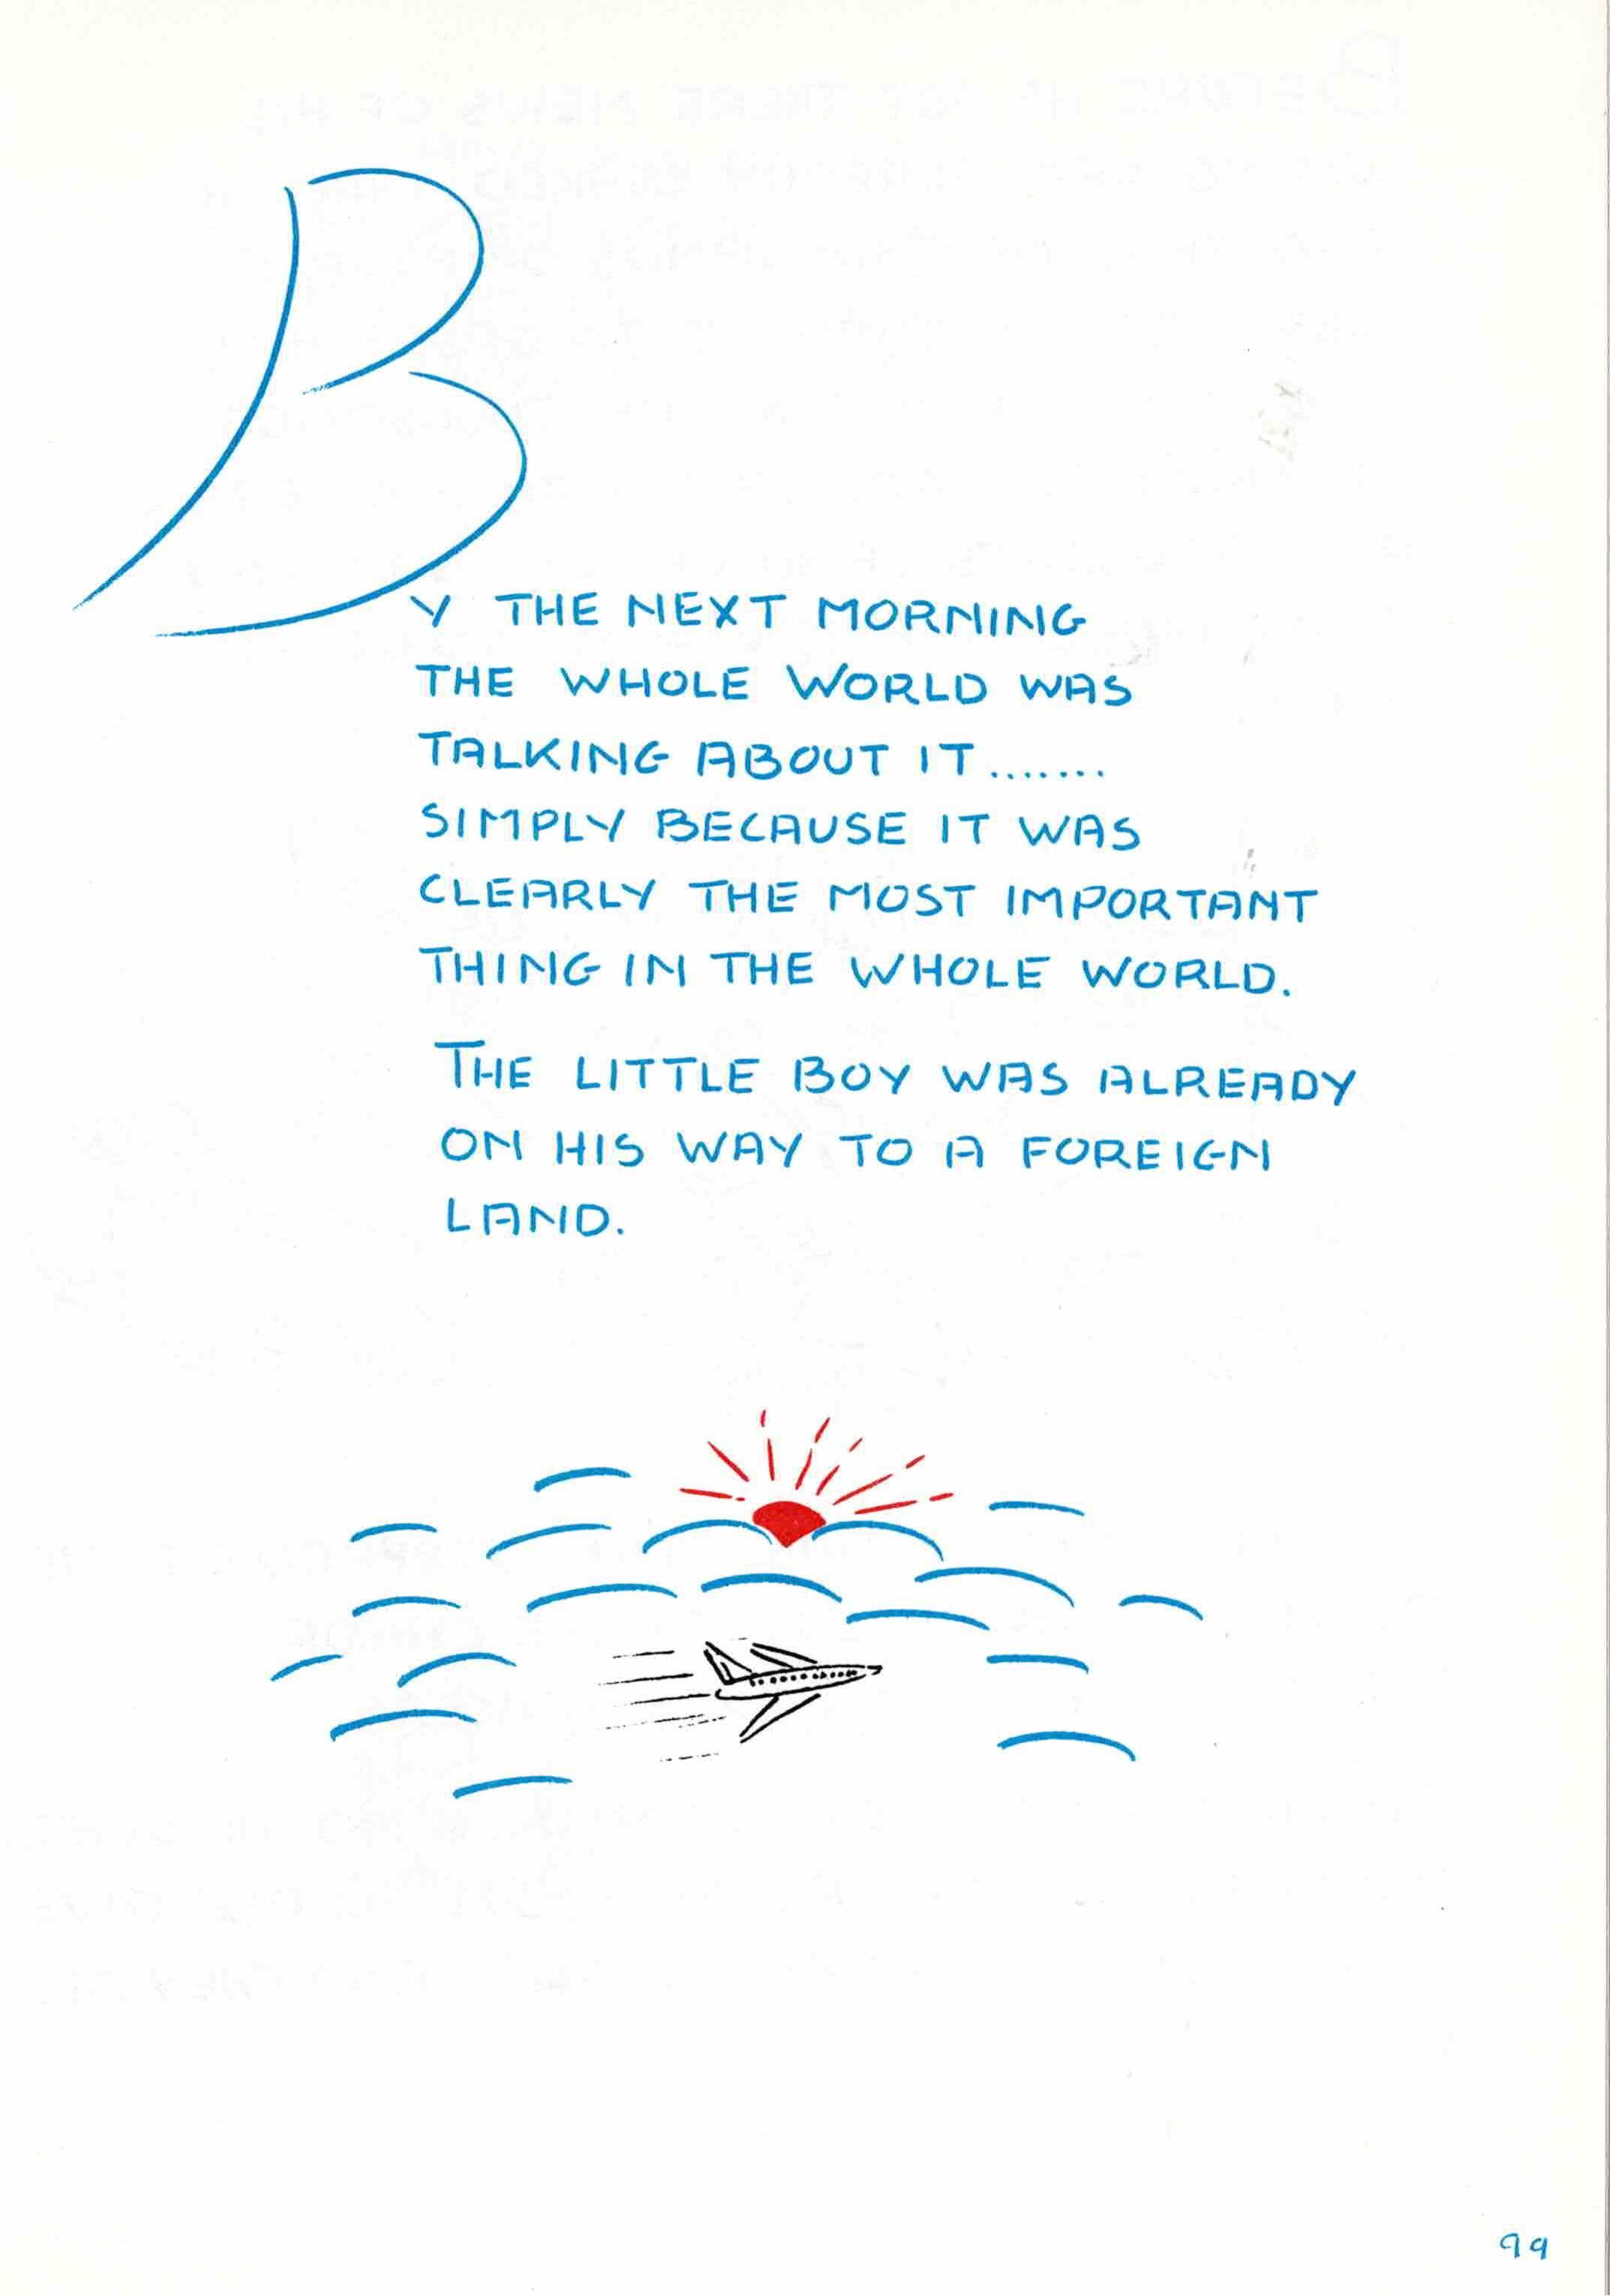 BY THE NEXT MORNING
THE WHOLE WORLD WAS
TALKING ABOUT IT.......
SIMPLY BECAUSE IT WAS
CLEARLY THE MOST IMPORTANT
THING IN THE WHOLE WORLD.
THE LITTLE BOY WAS ALREADY
ON HIS WAY TO A FOREIGN
LAND.
99